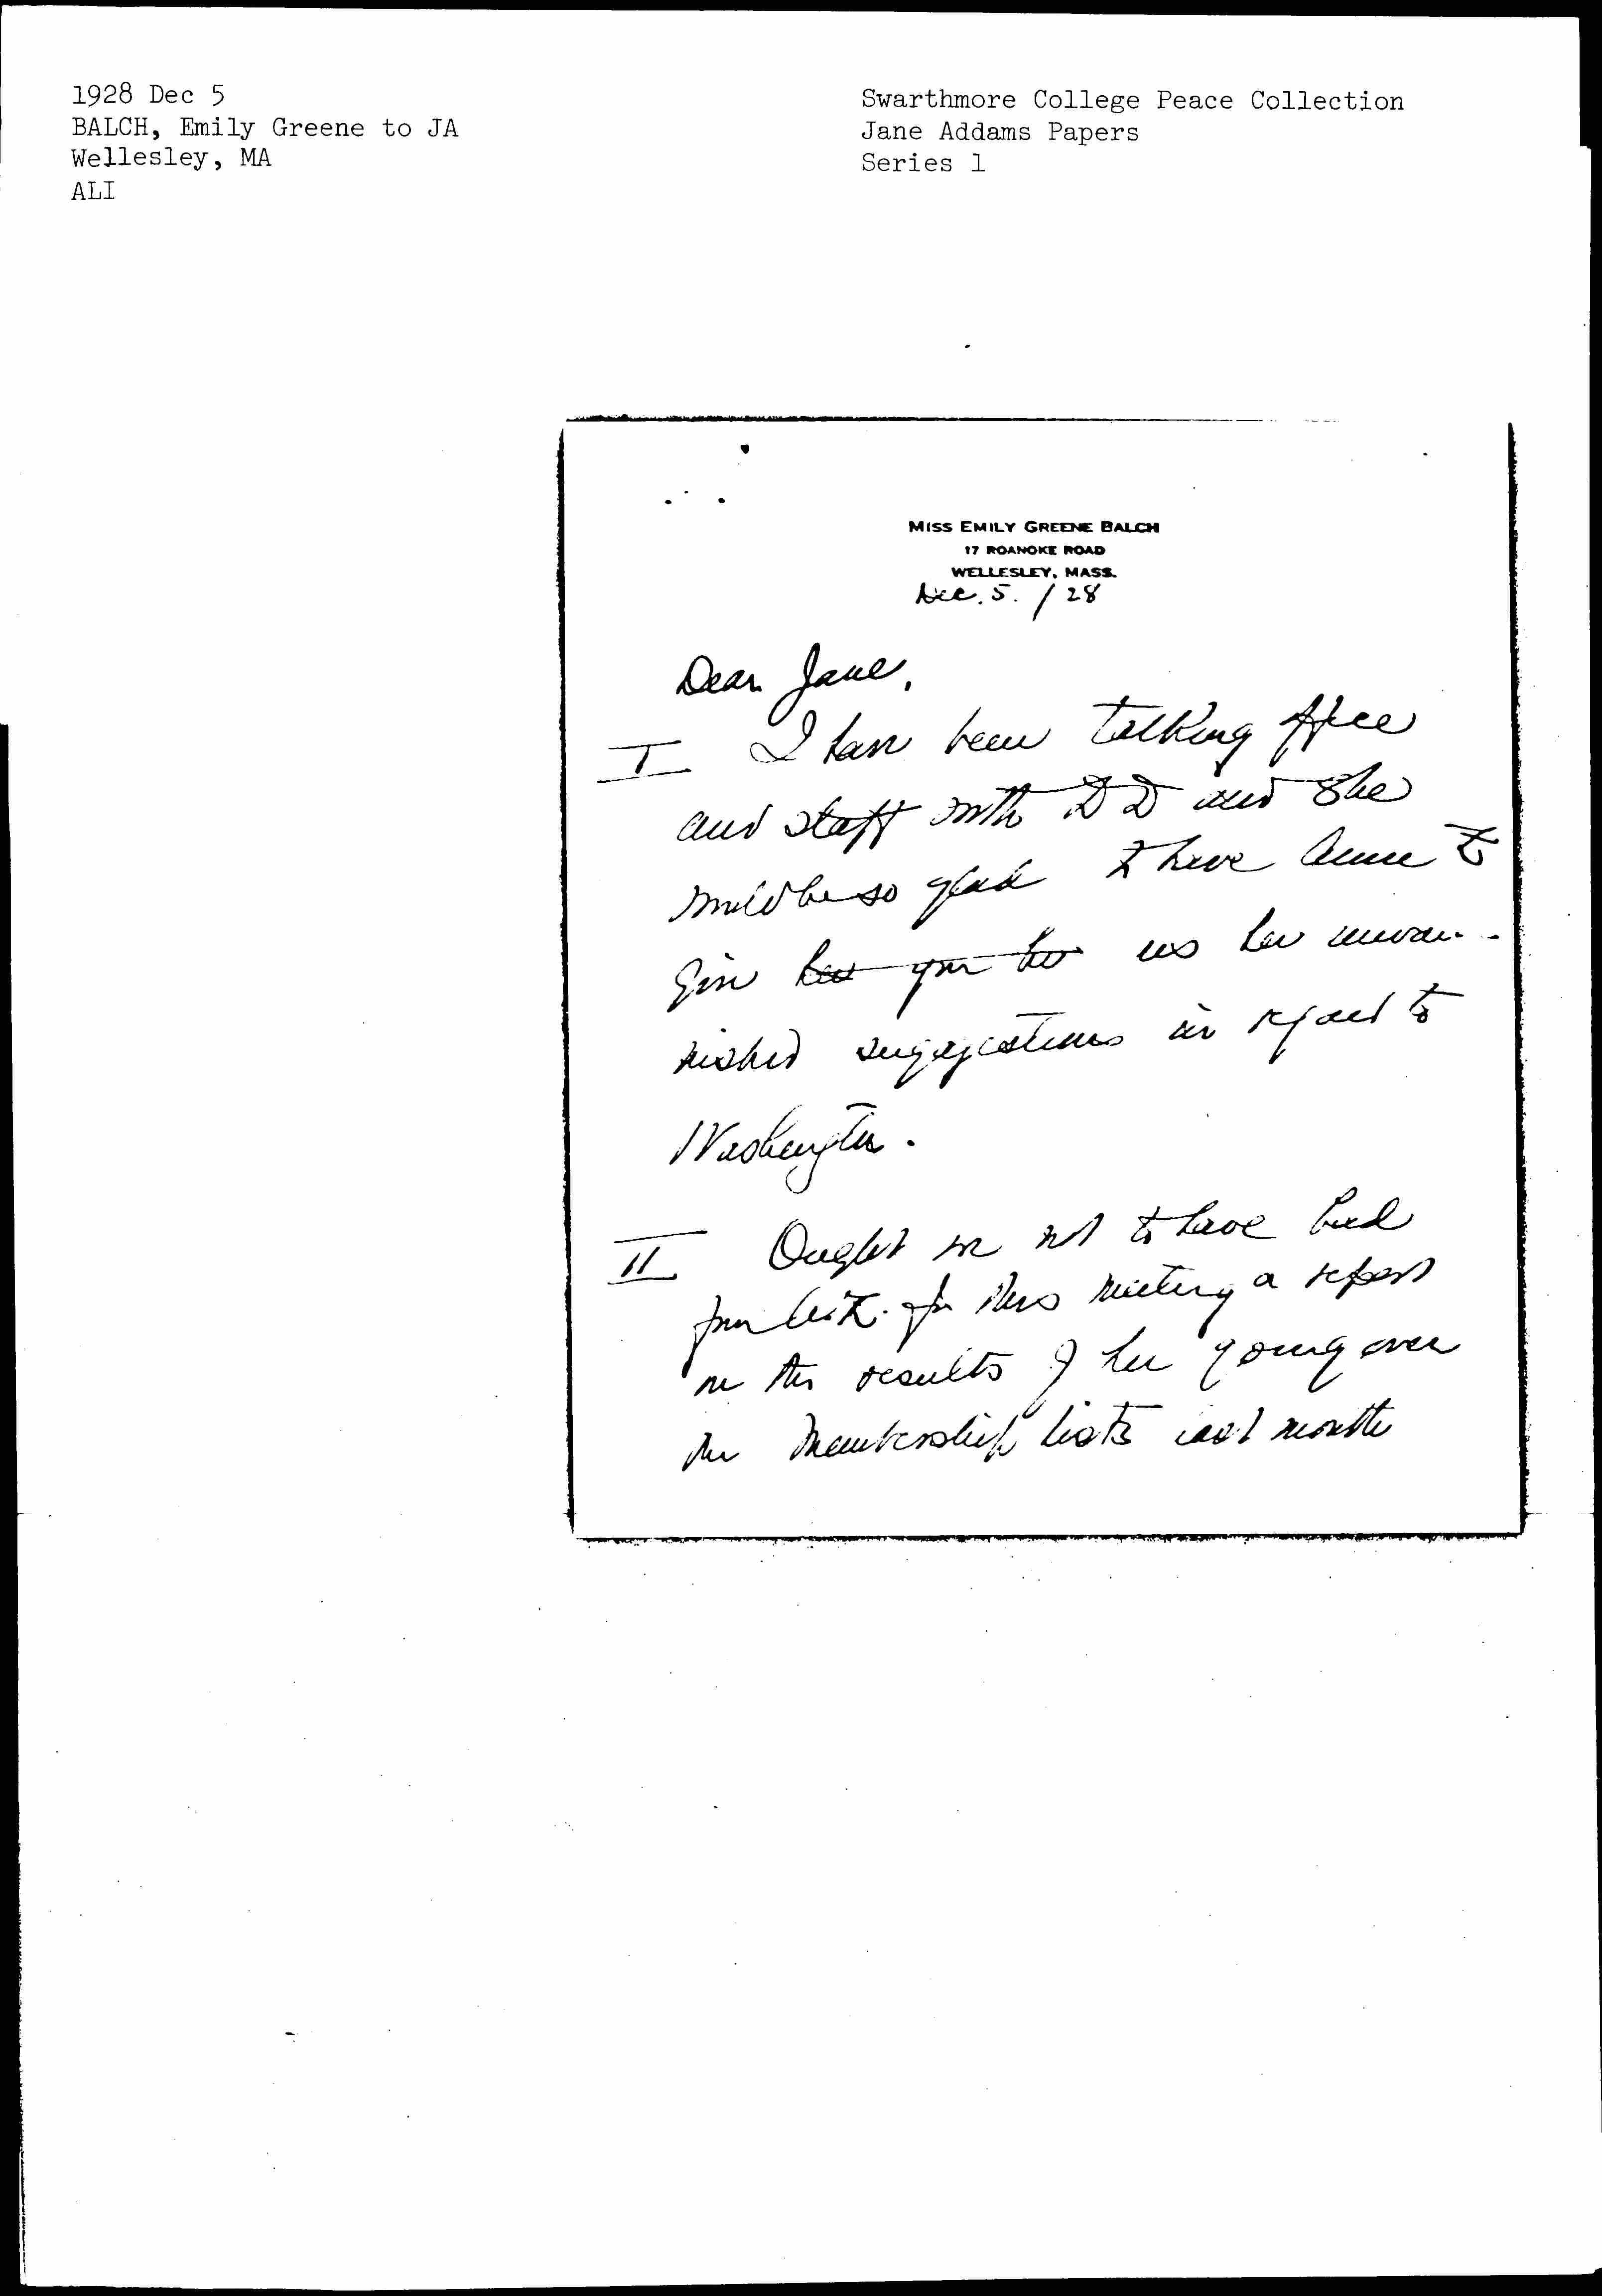 1928 Dec 5
BALCH, Emily Greene to JA
Wellesley, MA
ALI
Swarthmore College Peace Collection
Jane Addams Papers
Series 1
MISS EMILY GREENE BALCH
17 ROANOKE ROAD
WELLESLEY, MASS.
Dec. 5. / 28
Dear Jane,
I I have been talking office
and staff with DD and she
would be so glad to have to
give her your her us her unvar-
nished suggestions in regard to
Washington.
II Ought we not to have had
from for this meeting a report
on the results of her going over
the membership lists last month